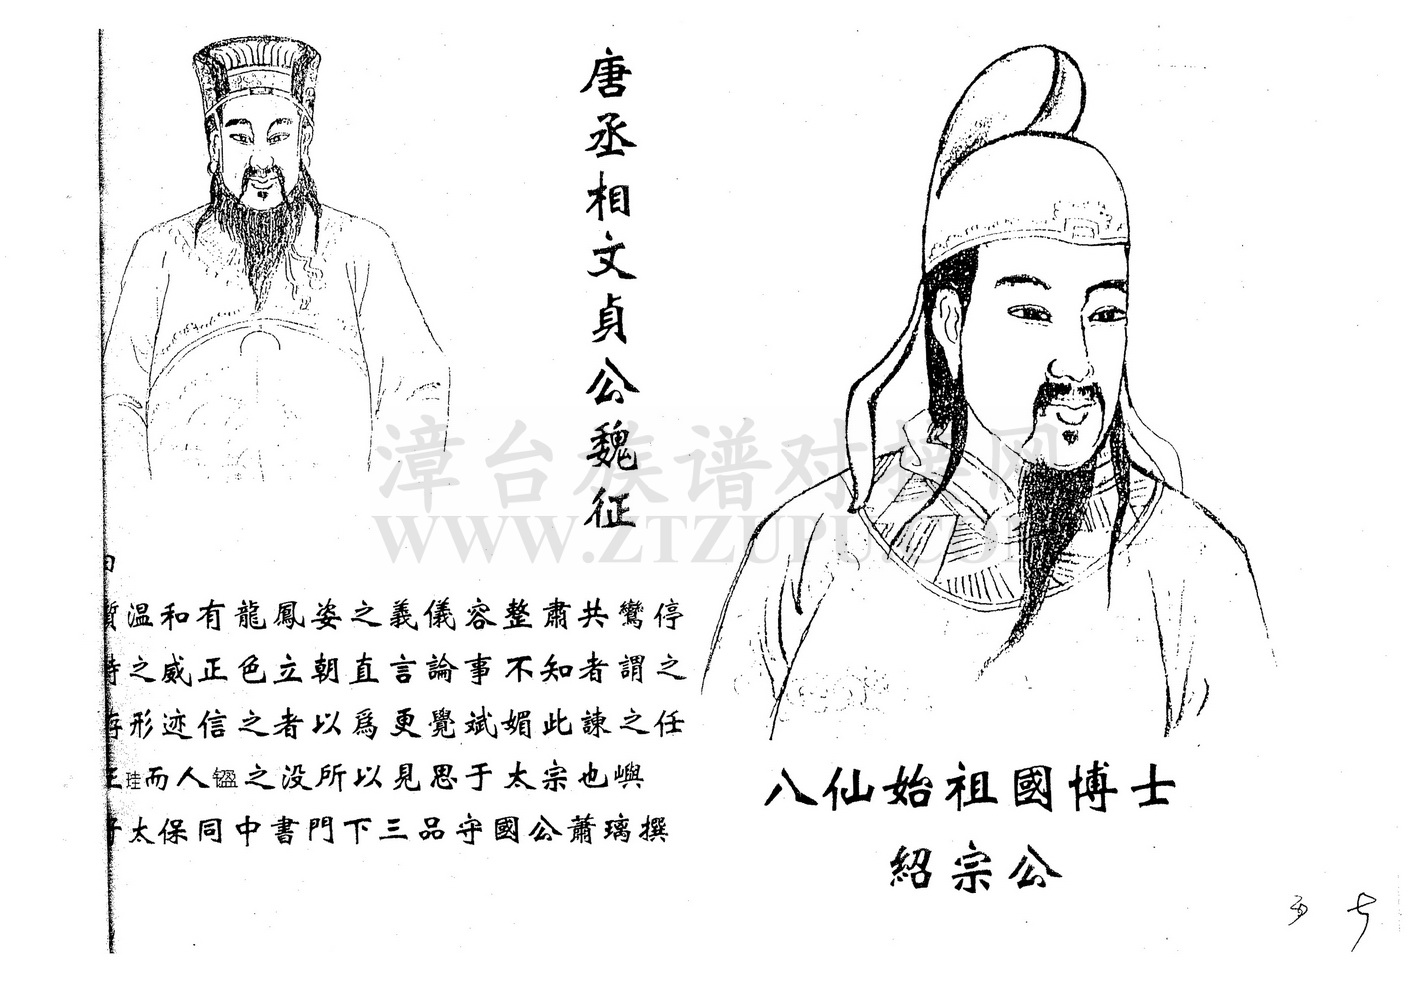 唐丞相文貞公魏征
質温和有龍鳳姿之義儀容整肅共鸞停
之威正色立朝直言論事不知者謂之
形迹信之者以爲更覺斌媚此諫之任
王珪而人鑑之没所以見思于太宗也嶼
太保同中書門下三品守國公蕭璃撰
八仙始祖國博士
紹宗公
漳台族谱对接网
WWW.ZTZUPU.COM